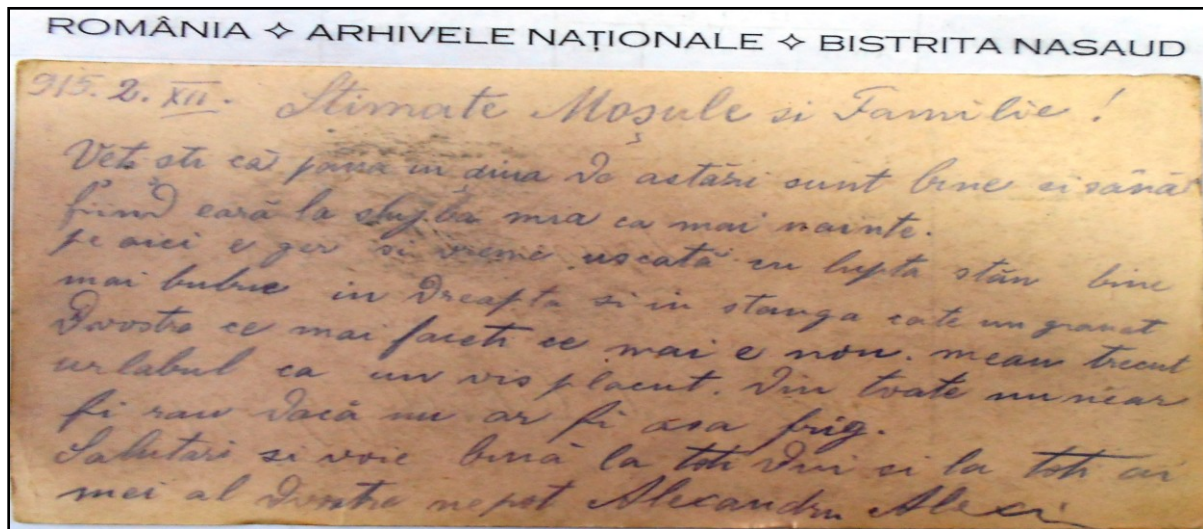 ROMÂNIA ✧ ARHIVELE NAȚIONALE ✧ BISTRITA NASAUD
915. 2. XII. Stimate Moșule si Familie!
Veți sti că pana in diua de astări sunt bine si sănă
fiind eară la slujba mea ca mai nainte.
pe aici e ger si vreme uscată cu lupta stăn bine
mai bubue in dreapta si in stanga cate un granat
Dvostra ce mai faceti ce mai e nou. meau trecut
urlabul ca un vis placut. din toate nu near
fi rau dacă nu ar fi asa frig.
Salutari si voie bună la toti Dvi si la toti ai
mei al Dvostre nepot Alexandru Alexi